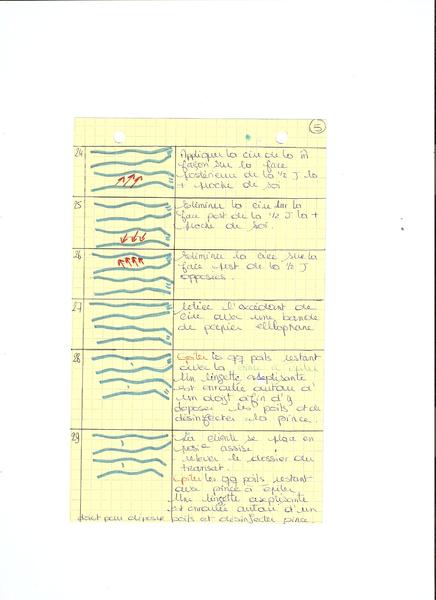 5
24
Appliquer la cire de la m̂
façon sur la face
postérieure de la 1/2 J la
+ proche de soi
25
Eliminer la cire sur la
face post de la 1/2 J la +
proche de soi.
26
Eliminer la cire sur la
face post de la 1/2 J
opposées.
27
Retirer l'excédant de
cire avec une bande
de papier cellophane
28
Epiler les qq poils restant
avec la pince à épiler
Une lingette aseptisante
est enroulée autour d'
un doigt afin d'y
déposer les poils et de
désinfecter la pince.
29
La cliente se place en
pose assise
relever le dossier du
transat.
Epiler les qq poils restant
aux pince à épiler
Une lingette aseptisante
est enroulée autour d'un
doigt pour déposer poils et désinfecter pince.